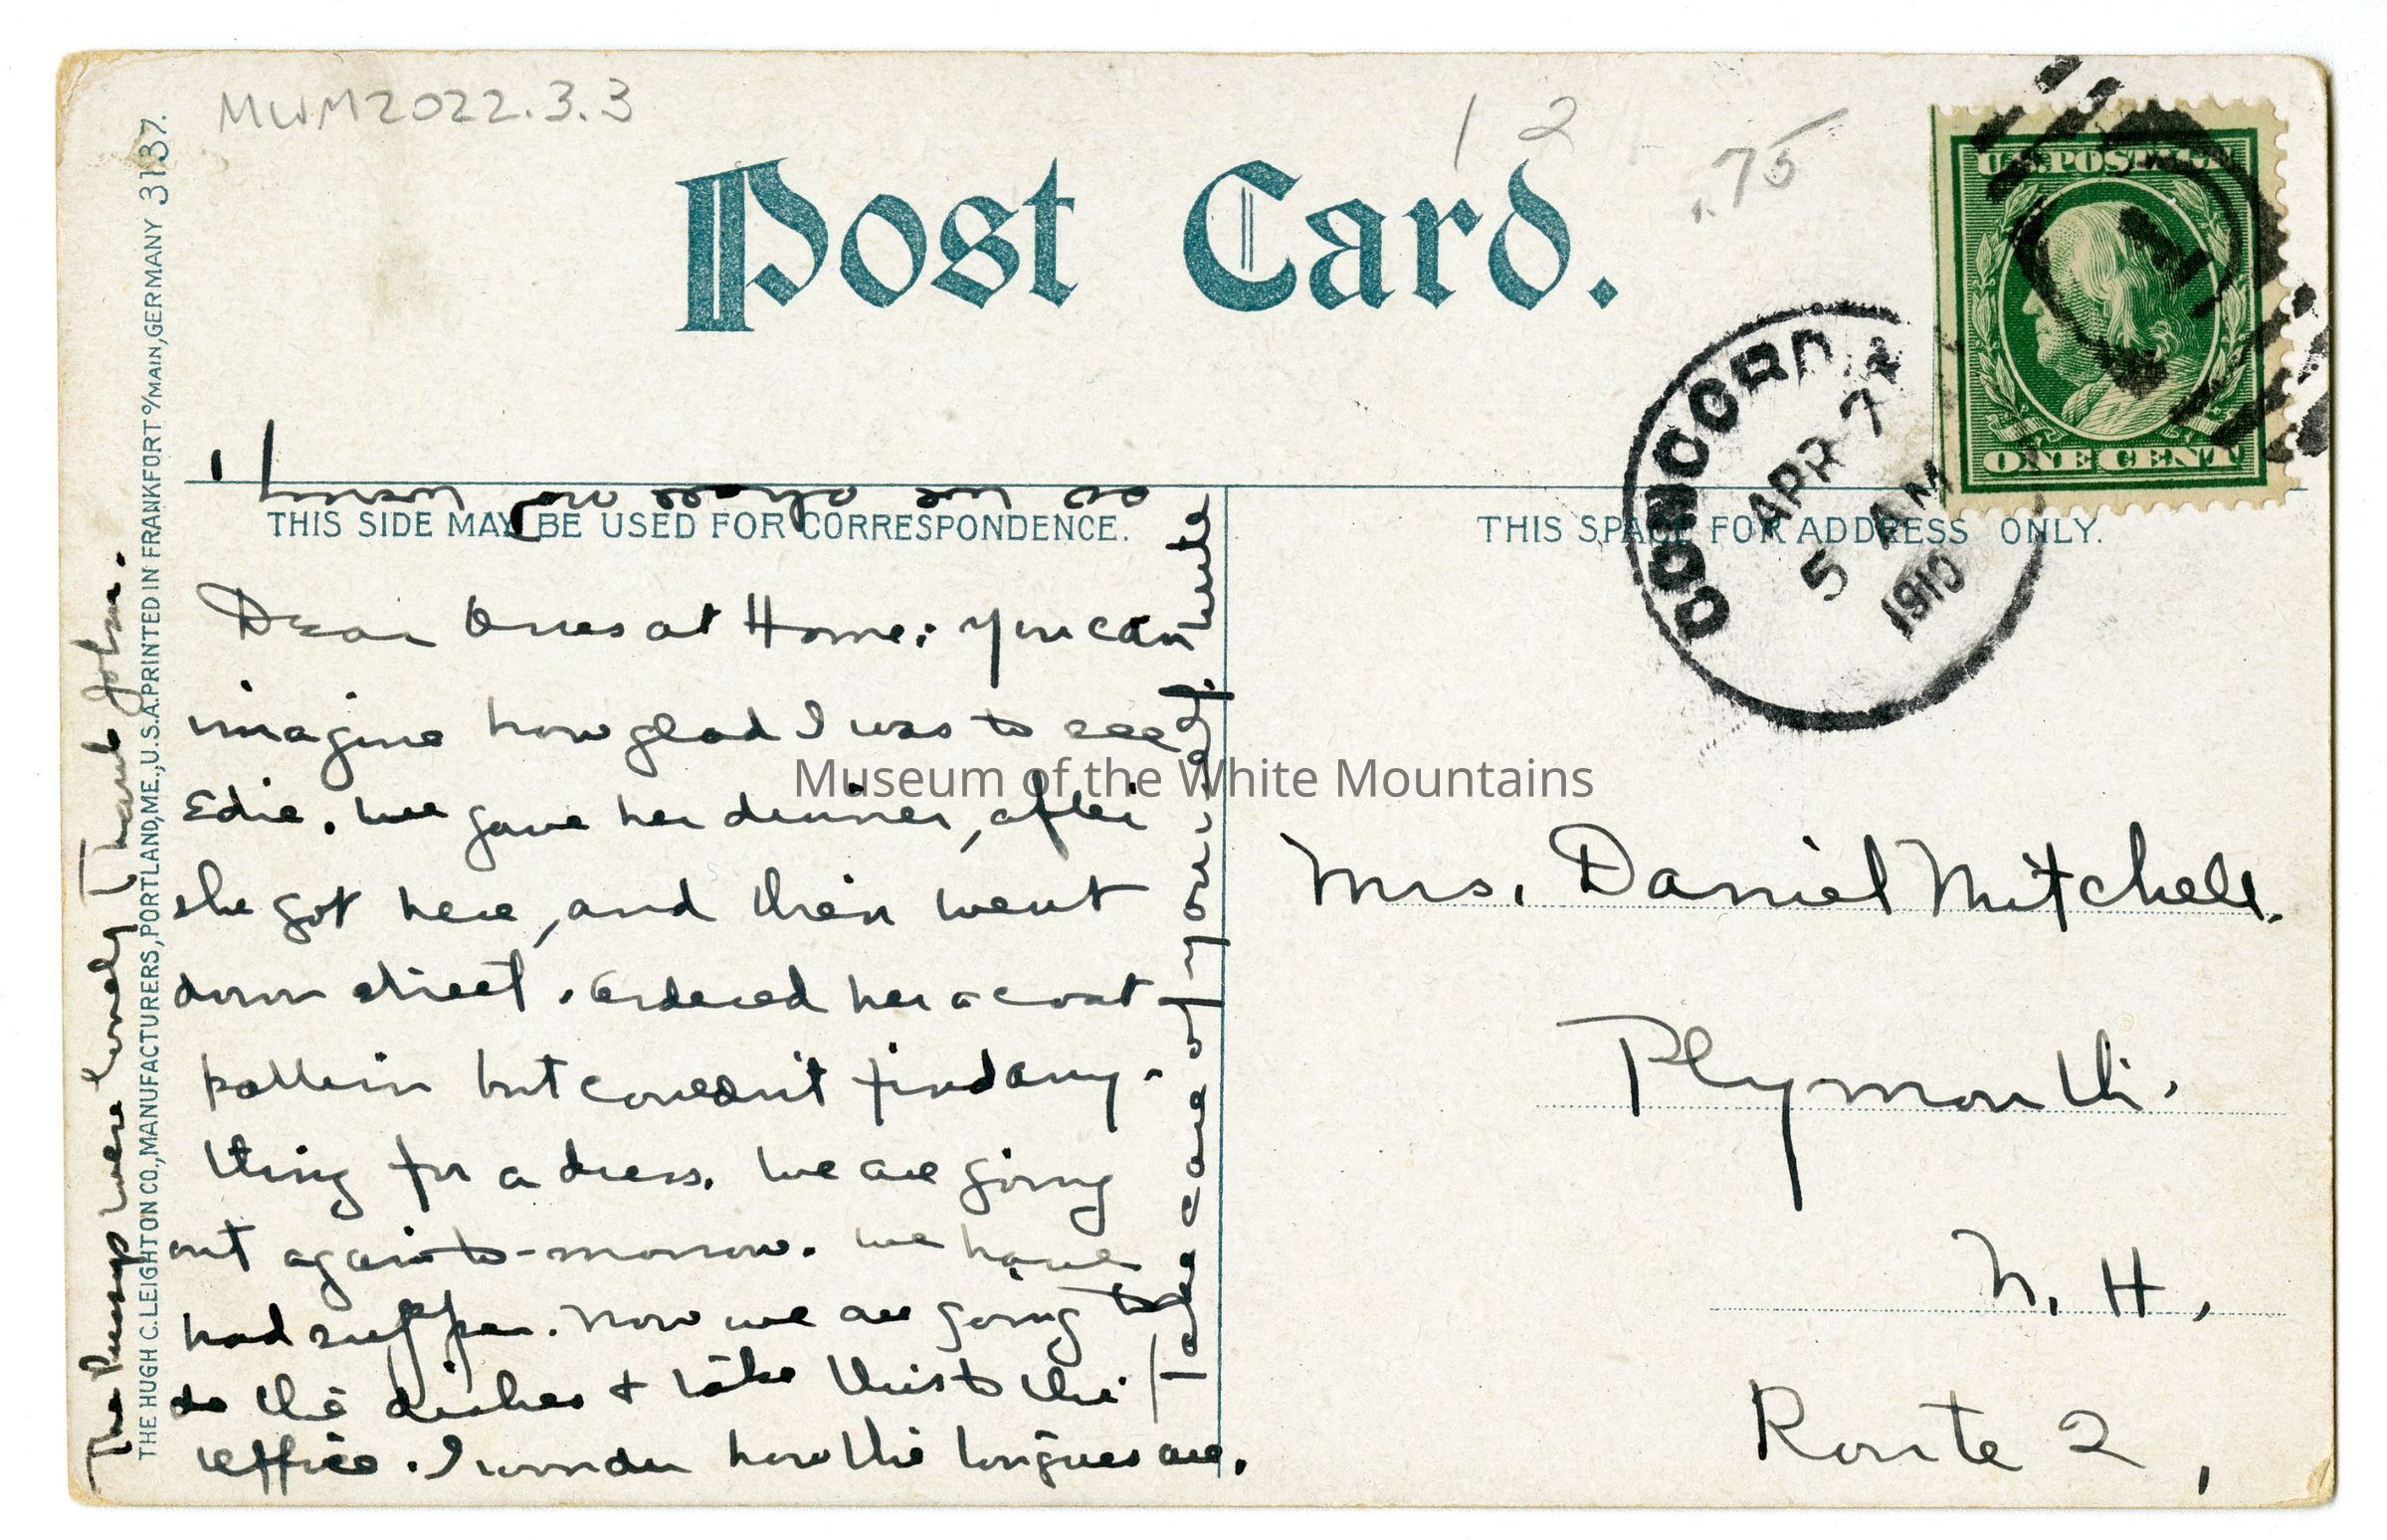 MWM2022.3.3
12
.75
Post Card.
U.S. POSTAGE
ONE CENT
1
CONCORD
APR 7
5 AM
1910
THIS SIDE MAY BE USED FOR CORRESPONDENCE.
THIS SPACE FOR ADDRESS ONLY.
Dear Ones at Home: You can
imagine how glad I was to see
Edie. We gave her dinner, after
she got here, and then went
down street. Ordered her a coat
pattern but couldn't find any-
thing for a dress. We are going
out again to-morrow. We have
had supper. Now we are going to
do the dishes & take this to the
office. I wonder how the tongues are.
Take care of your self. Write
so we shall
The were lovely Thank John.
Museum of the White Mountains
Mrs. Daniel Mitchell.
Plymouth.
N. H.,
Route 2,
THE HUGH C. LEIGHTON CO., MANUFACTURERS, PORTLAND, ME., U.S.A. PRINTED IN FRANKFORT o/MAIN, GERMANY 3137.